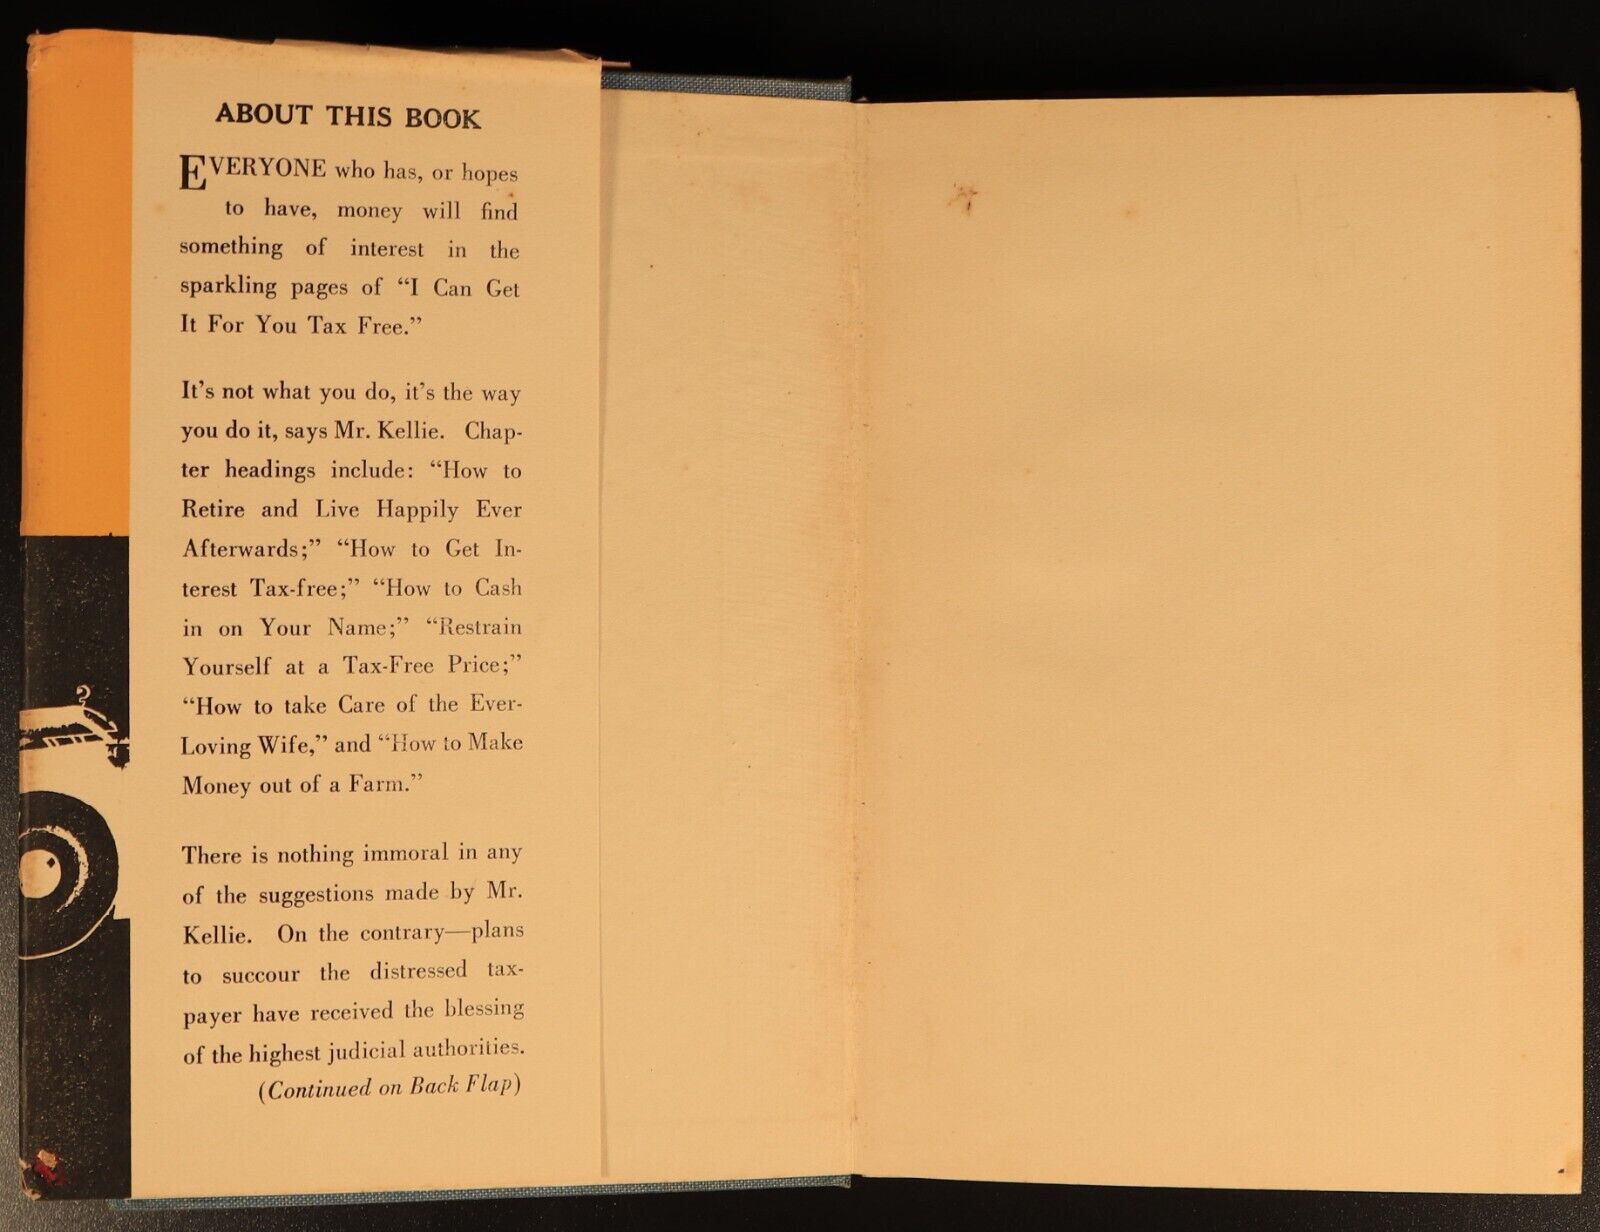 ABOUT THIS BOOK
EVERYONE who has, or hopes
to have, money will find
something of interest in the
sparkling pages of “I Can Get
It For You Tax Free.”
It’s not what you do, it’s the way
you do it, says Mr. Kellie. Chap-
ter headings include: “How to
Retire and Live Happily Ever
Afterwards;” “How to Get In-
terest Tax-free;” “How to Cash
in on Your Name;” “Restrain
Yourself at a Tax-Free Price;”
“How to take Care of the Ever-
Loving Wife,” and “How to Make
Money out of a Farm.”
There is nothing immoral in any
of the suggestions made by Mr.
Kellie. On the contrary—plans
to succour the distressed tax-
payer have received the blessing
of the highest judicial authorities.
(Continued on Back Flap)